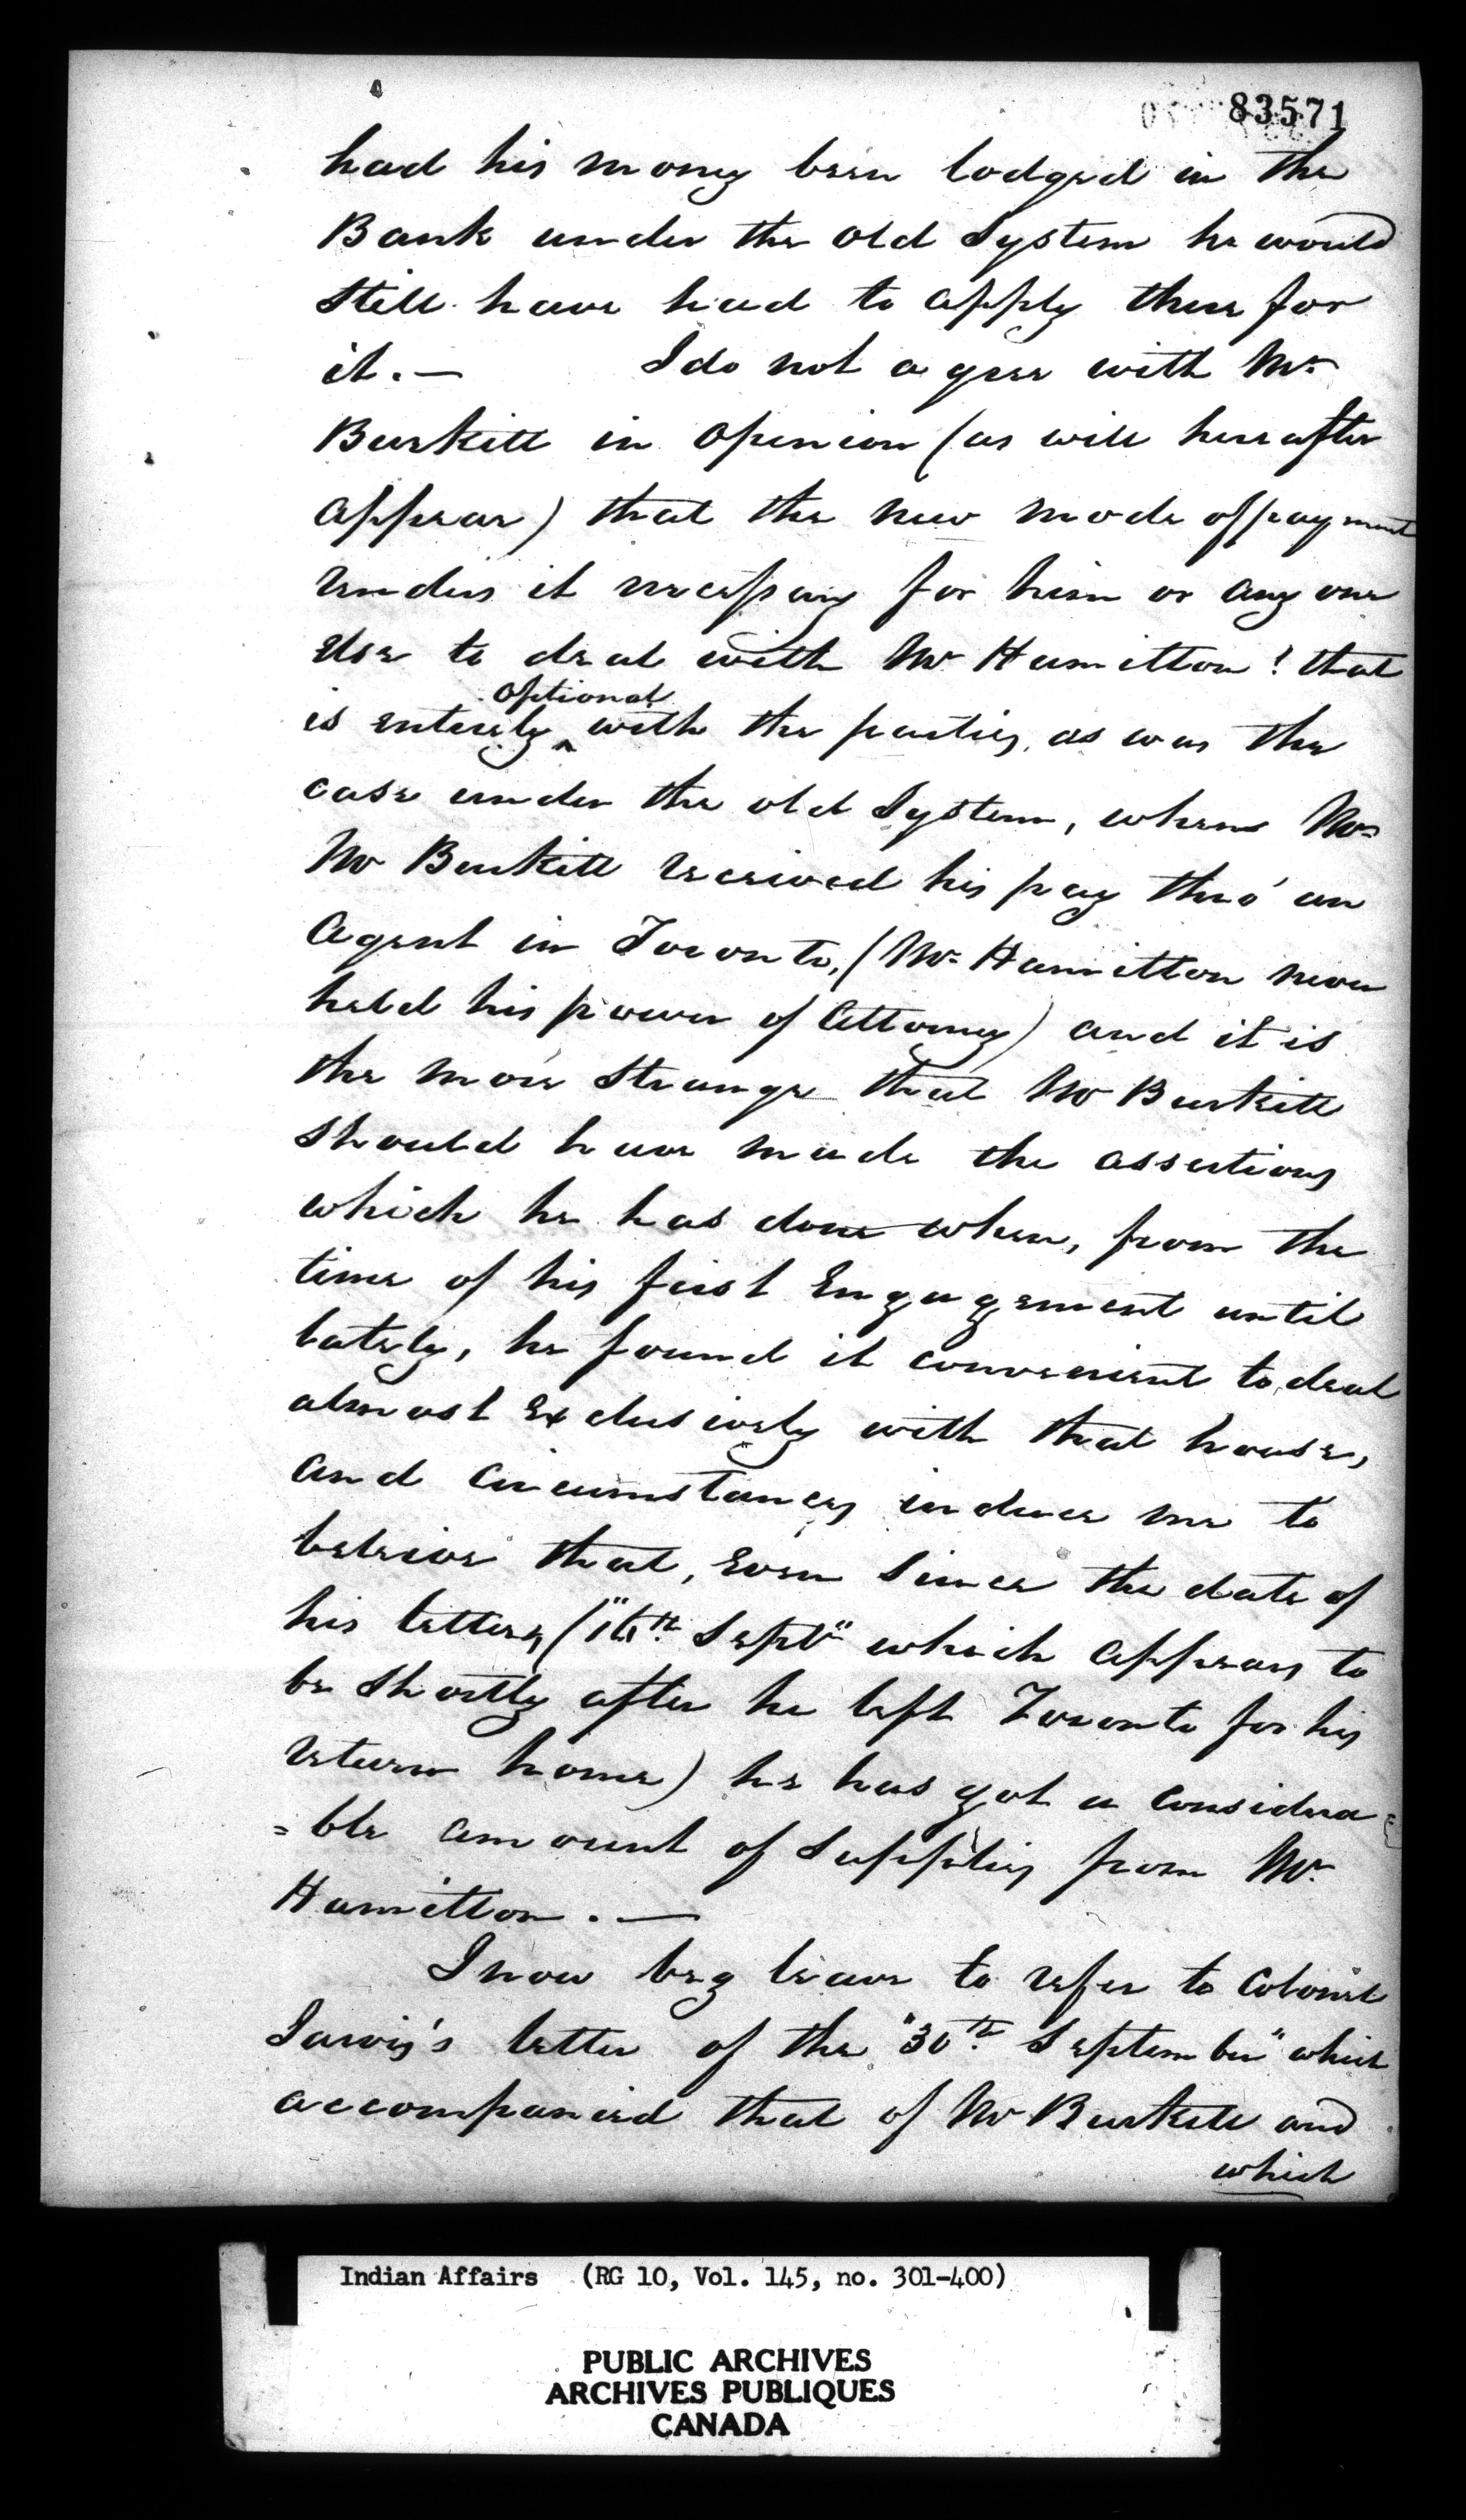 83571
had his money been lodged in the
Bank under the Old System he would
still have had to apply there for
it. — I do not agree with Mr
Burkitt in opinion (as will hereafter
appear) that the new mode of payment
renders it necessary for him or any one
else to deal with Mr Hamilton! that
optional
is entirely ^ with the parties, as was the
case under the old System, when Mr
Mr Burkitt received his pay thro' an
Agent in Toronto, (Mr Hamilton never
held his power of Attorney) and it is
the more strange that Mr Burkitt
should have made the assertions
which he has done when, from the
time of his first Engagement until
lately, he found it convenient to deal
almost exclusively with that house,
and circumstances induce me to
beleive that, even since the date of
his letter, ("16th Septr" which appears to
be shortly after he left Toronto for his
return home) he has got a considera=
=ble amount of Supplies from Mr
Hamilton. —
I now beg leave to refer to Colonel
Jarvis's letter of the "30th September" which
accompanied that of Mr Burkitt and
which
Indian Affairs (RG 10, Vol. 145, no. 301-400)
PUBLIC ARCHIVES
ARCHIVES PUBLIQUES
CANADA